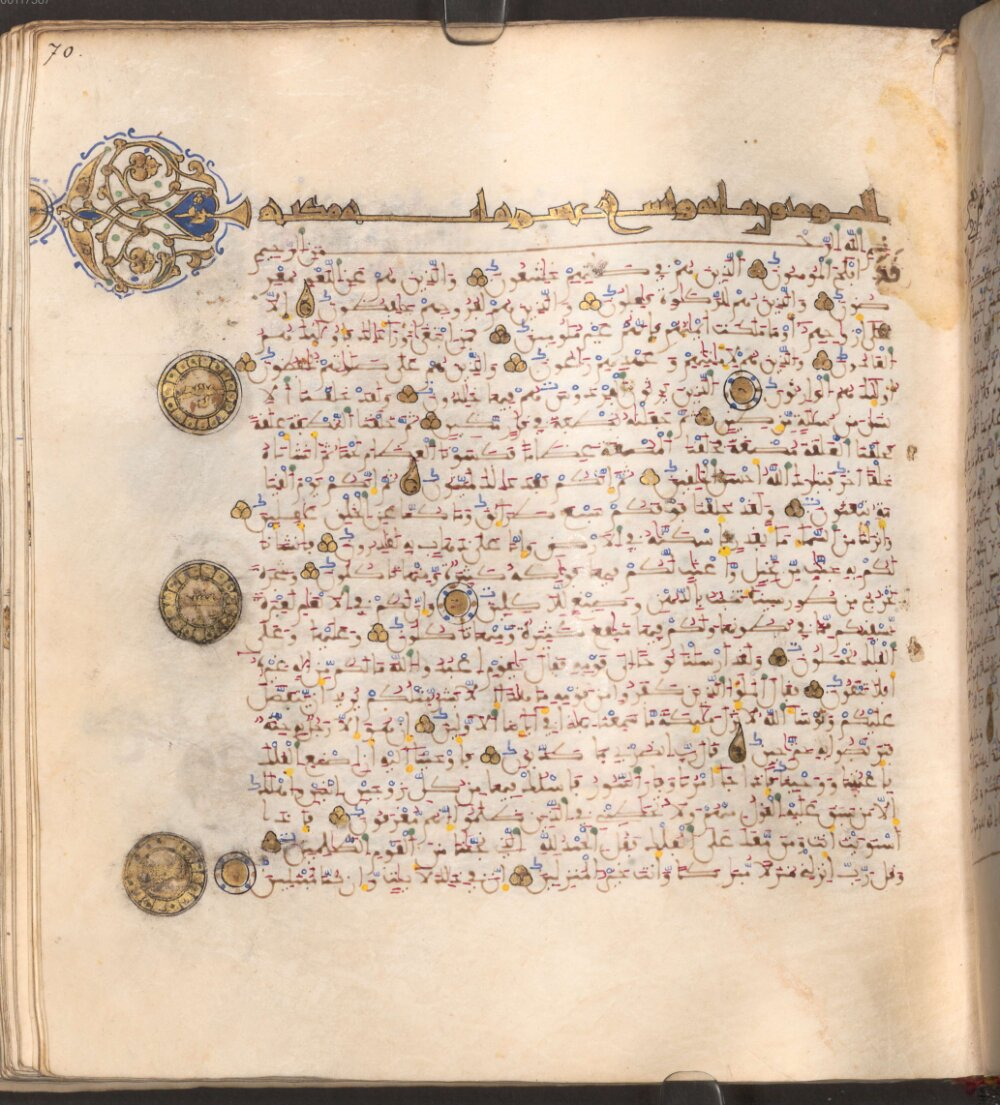 70.
المومنون مائة وتسع عشرة اية مكية
بسم الله الرحمن الرحيم
قد افلح المومنون الذين هم في صلاتهم خشعون والذين هم عن اللغو معر
ضون والذين هم للزكوة فعلون والذين هم لفروجهم حفظون الا
على ازوجهم او ما ملكت ايمنهم فانهم غير ملومين فمن ابتغى ورا ذلك فاولئك هم
العادون والذين هم لامنتهم وعهدهم رعون والذين هم على صلوتهم يحفظون
اولئك هم الورثون الذين يرثون الفردوس هم فيها خلدون ولقد خلقنا الا
نسن من سللة من طين ثم جعلنه نطفة في قرار مكين ثم خلقنا النطفة علقة
فخلقنا العلقة مضغة فخلقنا المضغة عظما فكسونا العظم لحما ثم انشانه
خلقا اخر فتبرك الله احسن الخلقين ثم انكم بعد ذلك لميتون ثم انكم يوم القيا
مة تبعثون ولقد خلقنا فوقكم سبع طرائق وما كنا عن الخلق غفلين
وانزلنا من السما ما بقدر فاسكنه في الارض وانا على ذهاب به لقدرون فانشانا
لكم به جنت من نخيل واعنب لكم فيها فوكه كثيرة ومنها تاكلون وشجرة
تخرج من طور سينا تنبت بالدهن وصبغ للاكلين وان لكم في الانعم لعبرة
نسقيكم مما في بطونها ولكم فيها منفع كثيرة ومنها تاكلون وعليها وعلى
الفلك تحملون ولقد ارسلنا نوحا الى قومه فقال يقوم اعبدوا الله ما لكم من اله غيره
افلا تتقون فقال الملؤا الذين كفروا من قومه ما هذا الا بشر مثلكم يريد ان يتفضل
عليكم ولو شا الله لانزل مليكة ما سمعنا بهذا في ابائنا الاولين ان هو الا رجل به جنة
فتربصوا به حتى حين قال رب انصرني بما كذبون فاوحينا اليه ان اصنع الفلك
باعيننا ووحينا فاذا جا امرنا وفار التنور فاسلك فيها من كل زوجين اثنين واهلك
الا من سبق عليه القول منهم ولا تخطبني في الذين ظلموا انهم مغرقون فاذا
استويت انت ومن معك على الفلك فقل الحمد لله الذي نجينا من القوم الظلمين
وقل رب انزلني منزلا مبركا وانت خير المنزلين ان في ذلك لايت وان كنا لمبتلين